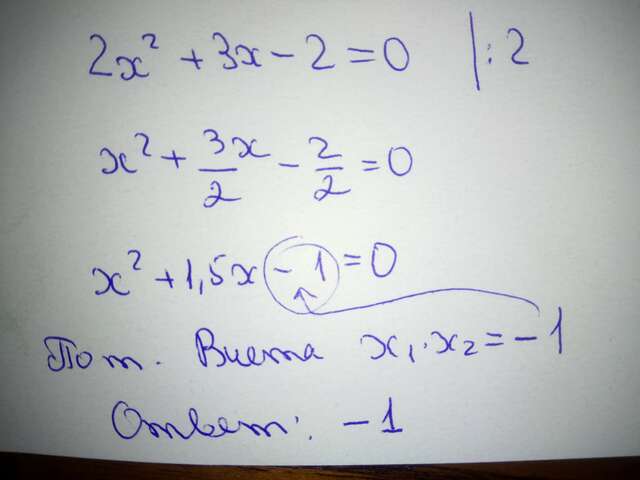 2x² + 3x - 2 = 0 | : 2
x² + 3x/2 - 2/2 = 0
x² + 1,5x - 1 = 0
По т. Виета x₁·x₂ = -1
Ответ: -1